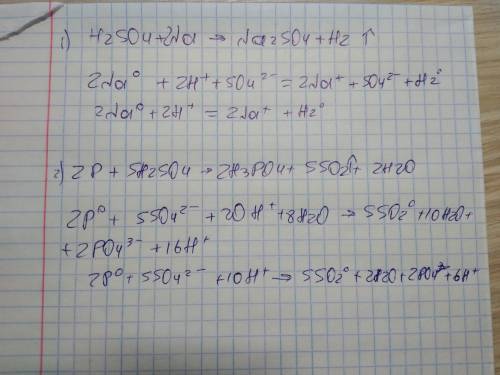 1) H2SO4+2Na → Na2SO4+H2 ↑
2Na⁰ + 2H⁺ + SO4²⁻ = 2Na⁺ + SO4²⁻ + H2⁰
2Na⁰ + 2H⁺ = 2Na⁺ + H2⁰
2) 2P + 5H2SO4 → 2H3PO4 + 5SO2↑ + 2H2O
2P⁰ + 5SO4²⁻ + 20H⁺ + 8H2O → 5SO2⁰ + 10H2O +
+ 2PO4³⁻ + 16H⁺
2P⁰ + 5SO4²⁻ + 10H⁺ → 5SO2⁰ + 2H2O + 2PO4³⁻ + 6H⁺